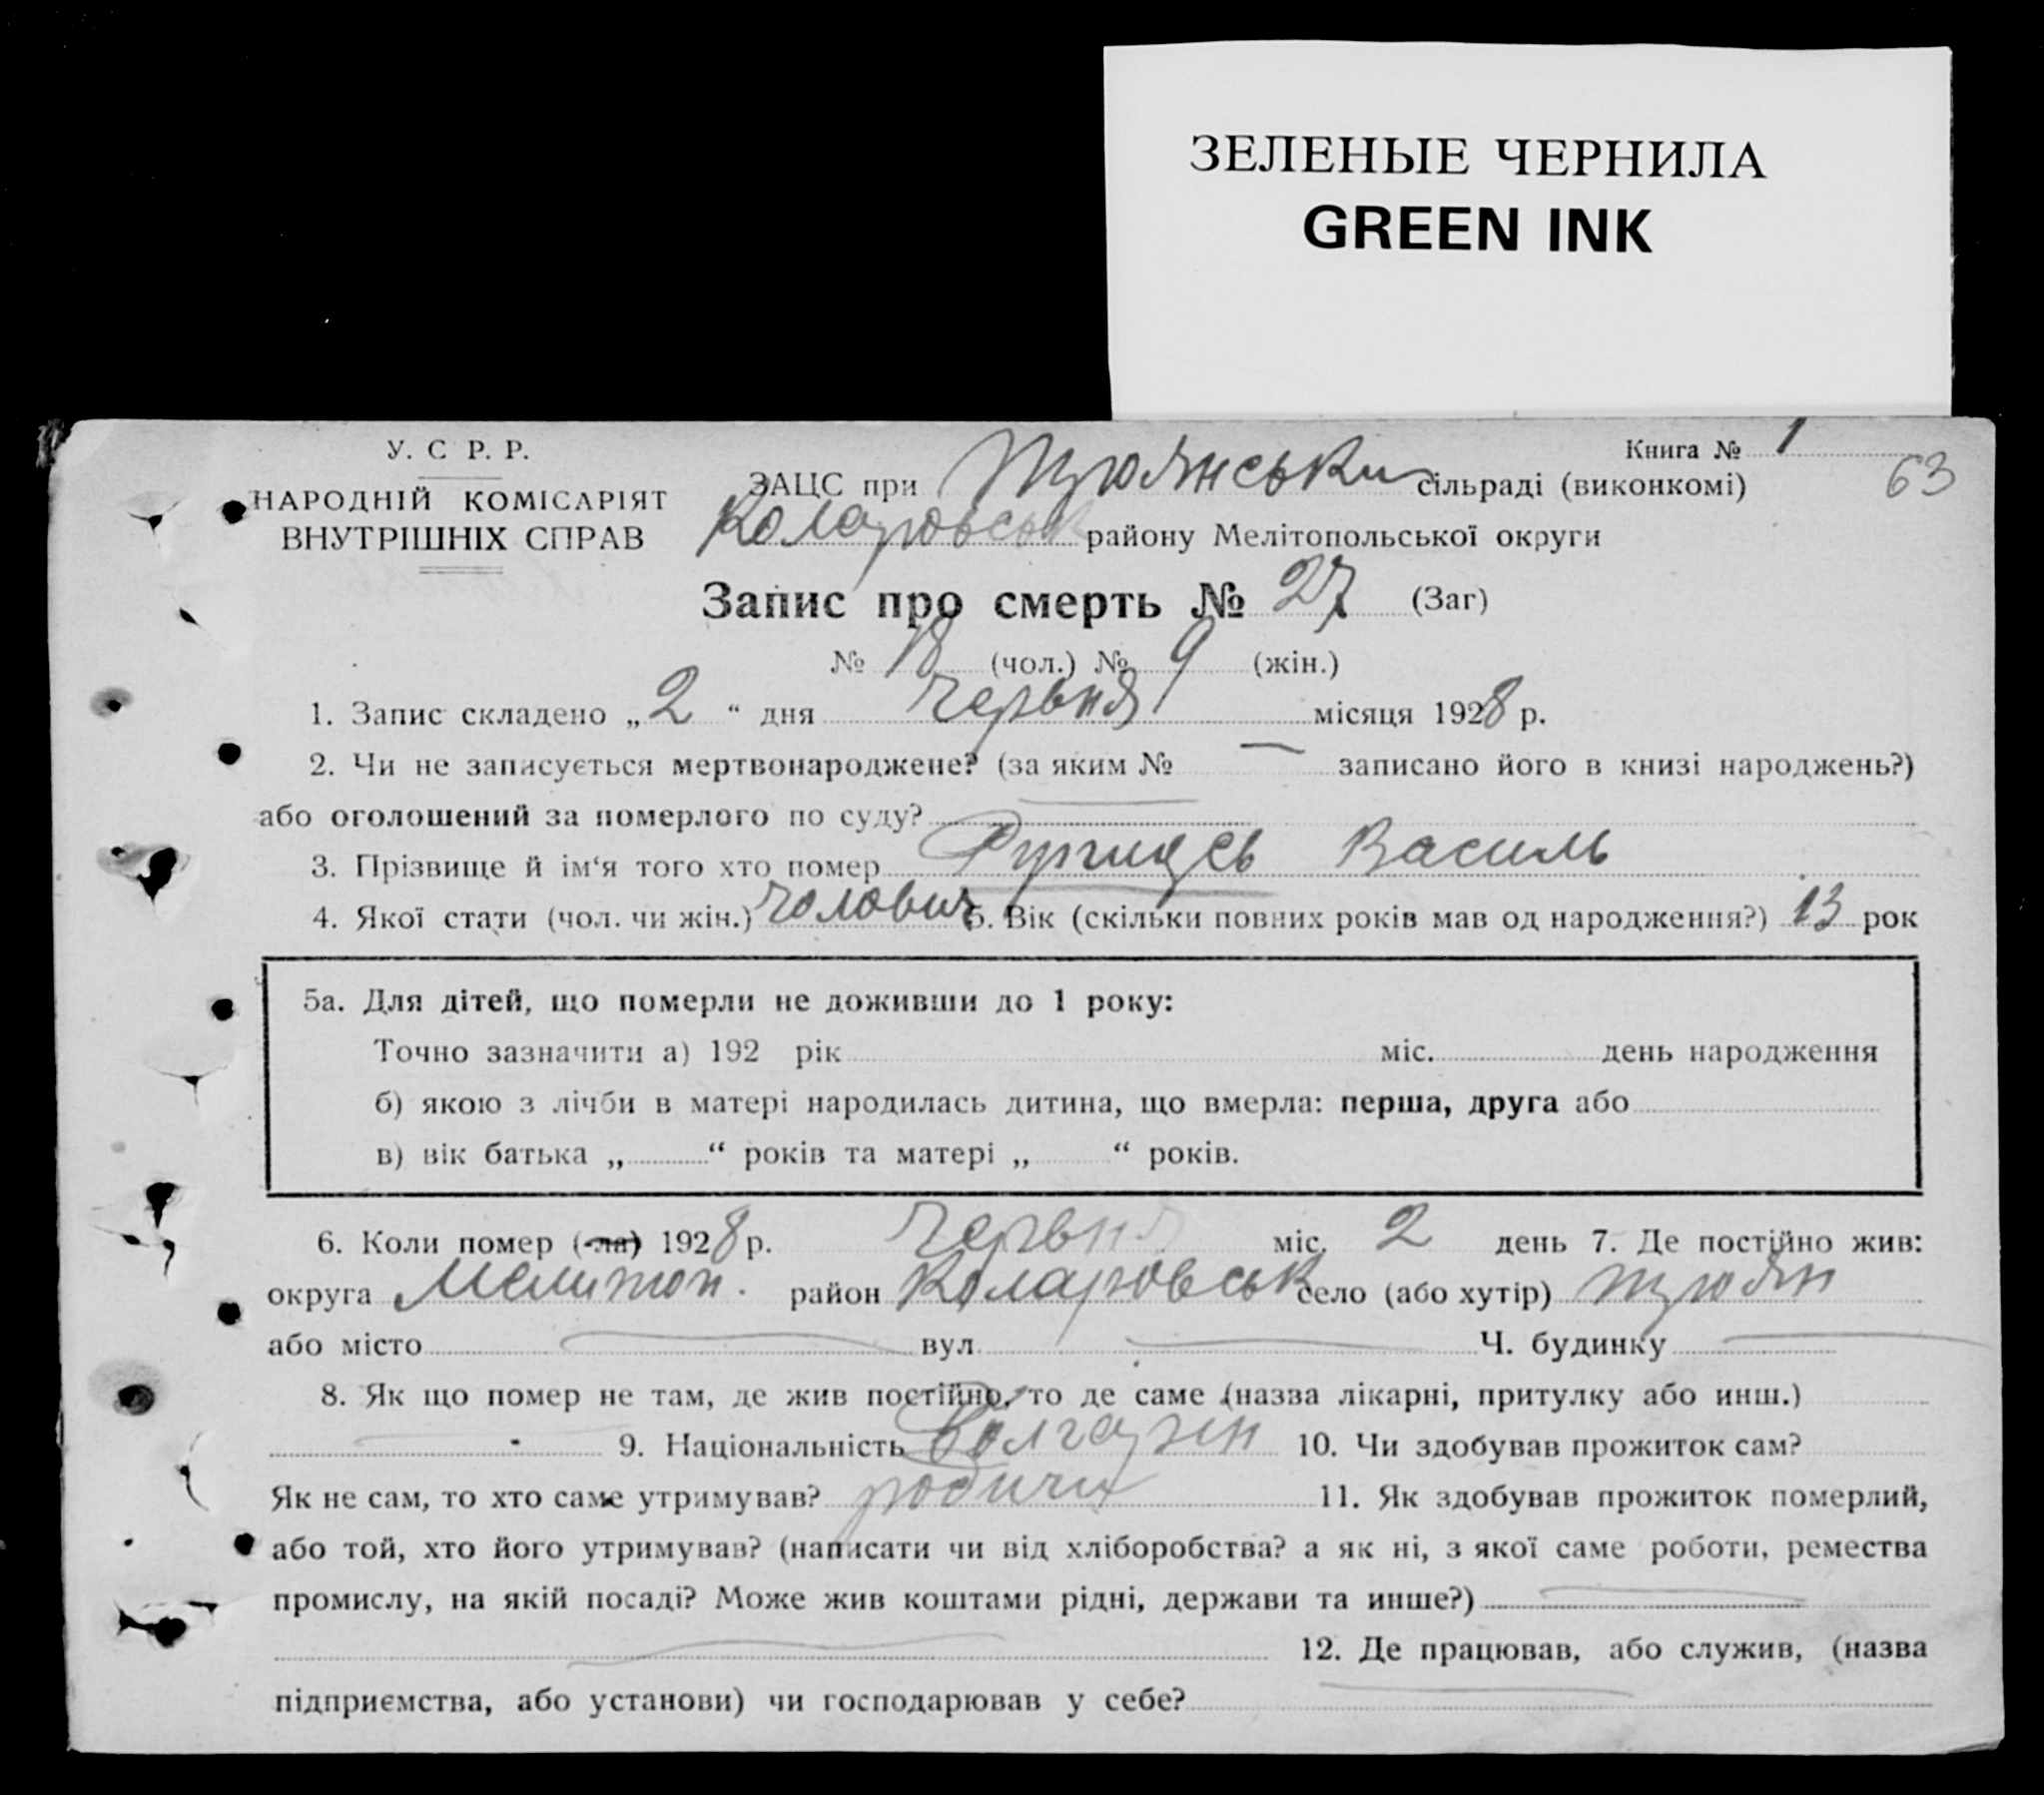 ЗЕЛЕНЫЕ ЧЕРНИЛА
GREEN INK
У. С Р. Р.
НАРОДНІЙ КОМІСАРІЯТ
ВНУТРІШНІХ СПРАВ
Книга № 1
63
ЗАЦС при Тшоянськи сільраді (виконкомі)
Коларовськ району Мелітопольської округи
Запис про смерть № 27 (Заг)
№ 18 (чол.) № 9 (жін.)
1. Запис складено „ 2 “ дня червня місяця 1928 р.
2. Чи не записується мертвонароджене? (за яким № — записано його в книзі народжень?)
або оголошений за померлого по суду?
3. Прізвище й ім‘я того хто помер Василь
4. Якої стати (чол. чи жін.) чолович 5. Вік (скільки повних років мав од народження?) 13 рок
5а. Для дітей, що померли не доживши до 1 року:
Точно зазначити а) 192 рік міс. день народження
б) якою з лічби в матері народилась дитина, що вмерла: перша, друга або
в) вік батька „ “ років та матері „ “ років.
6. Коли помер (-ла) 1928 р. червня міс. 2 день 7. Де постійно жив:
округа Мелитоп. район Коларовськ село (або хутір)
або місто — вул — Ч. будинку —
8. Як що помер не там, де жив постійно, то де саме (назва лікарні, притулку або инш.)
9. Національність Болгарин 10. Чи здобував прожиток сам?
Як не сам, то хто саме утримував? родичи 11. Як здобував прожиток померлий,
або той, хто його утримував? (написати чи від хліборобства? а як ні, з якої саме роботи, ремества
промислу, на якій посаді? Може жив коштами рідні, держави та инше?) —
12. Де працював, або служив, (назва
підприємства, або установи) чи господарював у себе?